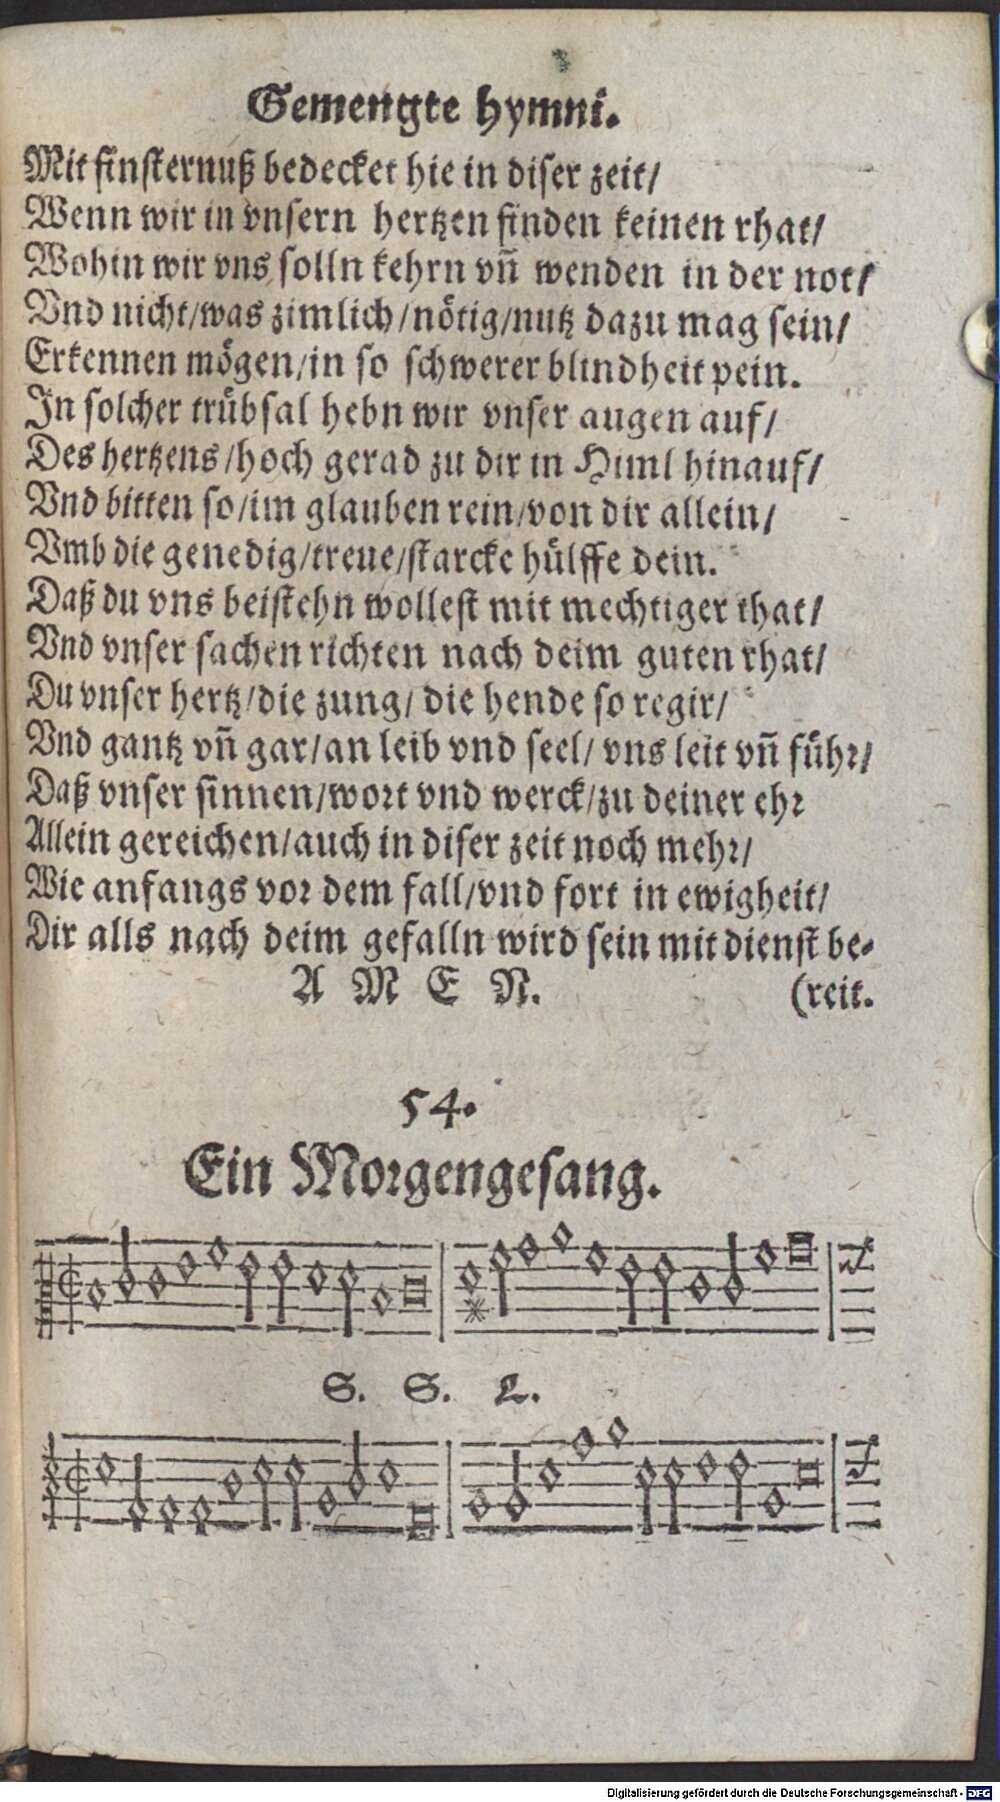 Gemengte hymni.
Mit finsternuß bedecket hie in diser zeit/
Wenn wir in vnsern hertzen finden keinen rhat/
Wohin wir vns solln kehrn vñ wenden in der not/
Vnd nicht/was zimlich/nötig/nutz dazu mag sein/
Erkennen mögen/in so schwerer blindheit pein.
In solcher trübsal hebn wir vnser augen auf/
Des hertzens/hoch gerad zu dir in Himl hinauf/
Vnd bitten so/im glauben rein/von dir allein/
Vmb die genedig/treue/starcke hülffe dein.
Daß du vns beistehn wollest mit mechtiger that/
Vnd vnser sachen richten nach deim guten rhat/
Du vnser hertz/die zung/die hende so regir/
Vnd gantz vñ gar/an leib vnd seel/vns leit vñ führ/
Daß vnser sinnen/wort vnd werck/zu deiner ehr
Allein gereichen/auch in diser zeit noch mehr/
Wie anfangs vor dem fall/vnd fort in ewigheit/
Dir alls nach deim gefalln wird sein mit dienst be-
A M E N. (reit.
54.
Ein Morgengesang.
S. S. L.
Digitalisierung gefördert durch die Deutsche Forschungsgemeinschaft - DFG